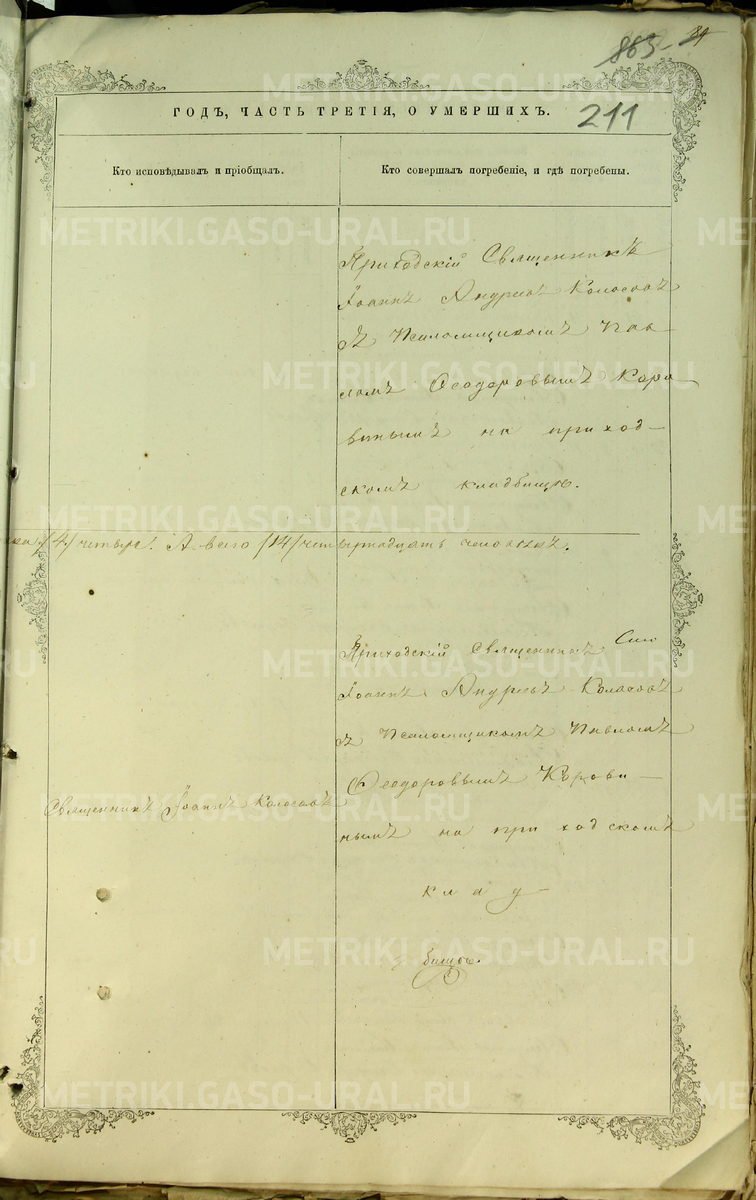 863 34
211
ГОДЪ, ЧАСТЬ ТРЕТІЯ, О УМЕРШИХЪ.
Кто исповѣдывалъ и пріобщалъ.
Кто совершалъ погребеніе, и гдѣ погребены.
Приходскій Священникъ
Іоаннъ Андреевъ Колосовъ
съ Псаломщикомъ Пав-
ломъ Ѳеодоровымъ Коро-
винымъ на приход-
скомъ кладбищѣ.
ка /4/ четыре. А всего /14/ четырнадцать человѣкъ.
Приходскій Священникъ
Іоаннъ Андреевъ Колосовъ
съ Псаломщикомъ Павломъ
Ѳеодоровымъ Корови-
нымъ на приходскомъ
клад-
бищѣ.
Священникъ Іоаннъ Колосовъ
METRIKI.GASO-URAL.RU